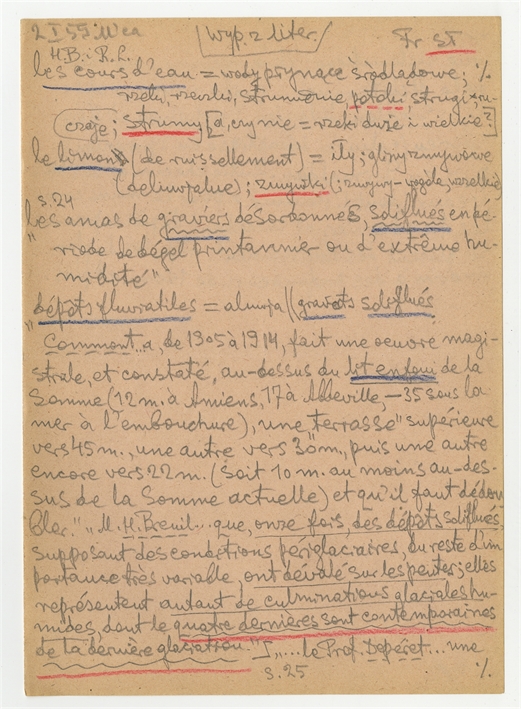 2 I 55 Wca [wyp. z liter.] Fr. st
H.B. i R.L.
les cours d'eau = wody płynące śródlądowe; ./.
rzeki, rzeczki, strumienie, potoki, strugi
czoje; strumy [a, czy nie = rzeki duże i wielkie?]
le limon (de ruissellement) = iły; gliny zmywowe
(deluwjalne); zmywki (; zmywy - wogóle, wszelkie)
s. 24
"les amas de graviers désordonnés, soliflués en pé-
riode de dégel printannier ou d'extrême hu-
midité"
dépôts fluviatiles = aluwja || gravats soliflués
"Commont..a, de 1905 à 1914, fait une oeuvre magi-
strale, et constaté, au-dessus du lit enfoui de la
Somme (12 m. a Amiens, 17 à Abbeville, - 35 sous la
mer à l'embouchure), une "terrasse" supérieure
vers 45 m., une autre vers 30 m., puis une autre
encore vers 22 m. (soit 10 m. au moins au-des-
sus de la Somme actuelle) et qu'il faut dédou
bler." "M. H. Breuil... que, onze fois, des dépôts soliflués
supposant des conditions périglaciaires, du reste d'im
portance très variable, ont dévalé sur les pentes; elles
représentent autant de culminations glaciales hu-
mides, dont le quatre dernières sont contemporaines
de la dernière glaciation." I "... le Prof. Depéret... une
s. 25 ./.